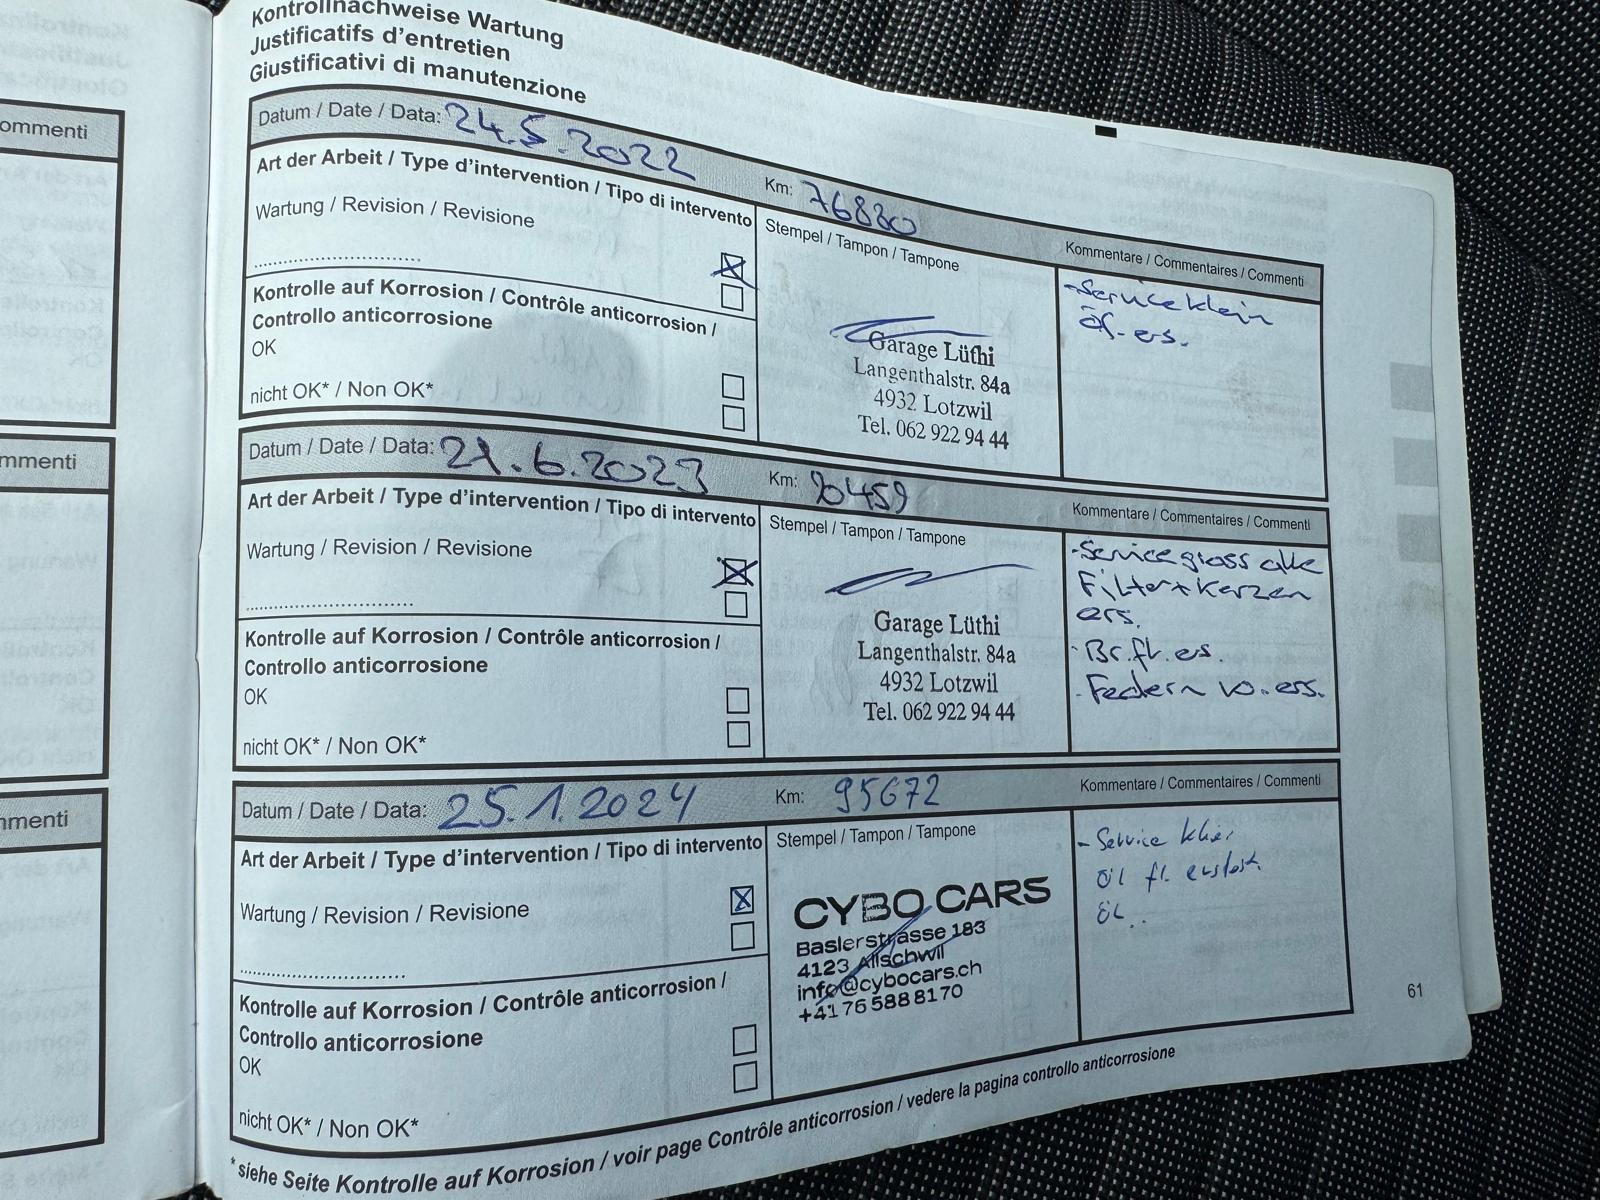 Kontrollnachweise Wartung
Justificatifs d'entretien
Giustificativi di manutenzione
ommenti
Datum / Date / Data: 24.5.2022
Km: 76880
Art der Arbeit / Type d'intervention / Tipo di intervento
Wartung / Revision / Revisione
Kontrolle auf Korrosion / Contrôle anticorrosione /
Controllo anticorrosione
OK
nicht OK* / Non OK*
Stempel / Tampon / Tampone
Garage Lüthi
Langenthalstr. 84a
4932 Lotzwil
Tel. 062 922 94 44
Kommentare / Commentaires / Commenti
- Service klein
ers.
mmenti
Datum / Date / Data: 21.6.2023
Km: 90459
Art der Arbeit / Type d'intervention / Tipo di intervento
Wartung / Revision / Revisione
Kontrolle auf Korrosion / Contrôle anticorrosione /
Controllo anticorrosione
OK
nicht OK* / Non OK*
Stempel / Tampon / Tampone
Garage Lüthi
Langenthalstr. 84a
4932 Lotzwil
Tel. 062 922 94 44
Kommentare / Commentaires / Commenti
- Service gross alle
Filter + Kerzen
ers.
- Br.fl. ers
- Federn vo. ers.
mmenti
Datum / Date / Data: 25.1.2024
Km: 95672
Art der Arbeit / Type d'intervention / Tipo di intervento
Wartung / Revision / Revisione
Kontrolle auf Korrosion / Contrôle anticorrosione /
Controllo anticorrosione
OK
nicht OK* / Non OK*
Stempel / Tampon / Tampone
CYBO CARS
Baslerstrasse 183
4123 Allschwil
info@cybocars.ch
+41 76 588 81 70
Kommentare / Commentaires / Commenti
- Service
öl
öl
*siehe Seite Kontrolle auf Korrosion / voir page Contrôle anticorrosion / vedere la pagina controllo anticorrosione
61